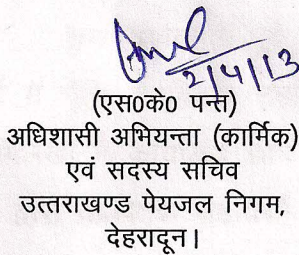 2/4/13
(एस0के0 पन्त)
अधिशासी अभियन्ता (कार्मिक)
एवं सदस्य सचिव
उत्तराखण्ड पेयजल निगम,
देहरादून।